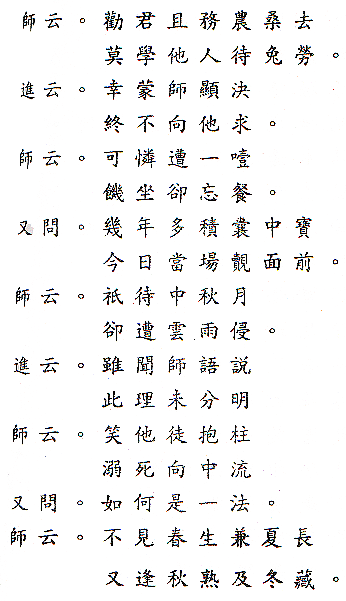 師云。勸君且務農桑去
莫學他人待兔勞。
進云。幸蒙師顯決
終不向他求。
師云。可憐遭一噎
饑坐卻忘餐。
又問。幾年多積囊中寶
今日當場覿面前。
師云。祇待中秋月
卻遭雲雨侵。
進云。雖聞師語說
此理未分明
師云。笑他徒抱柱
溺死向中流
又問。如何是一法。
師云。不見春生兼夏長
又逢秋熟及冬藏。